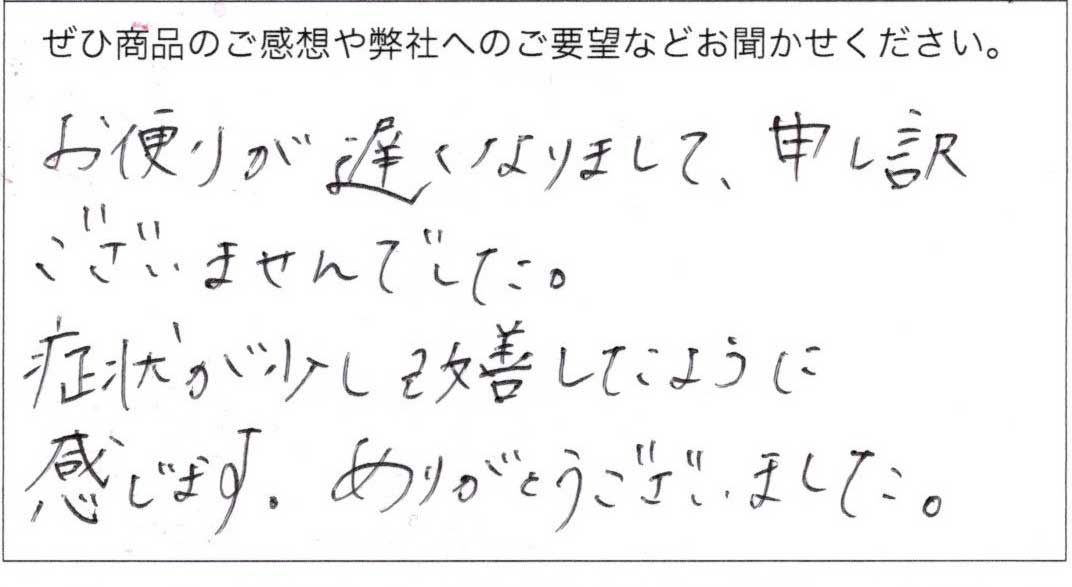 ぜひ商品のご感想や弊社へのご要望などお聞かせください。
お便りが遅くなりまして、申し訳
ございませんでした。
症状が少し改善したように
感じます。ありがとうございました。